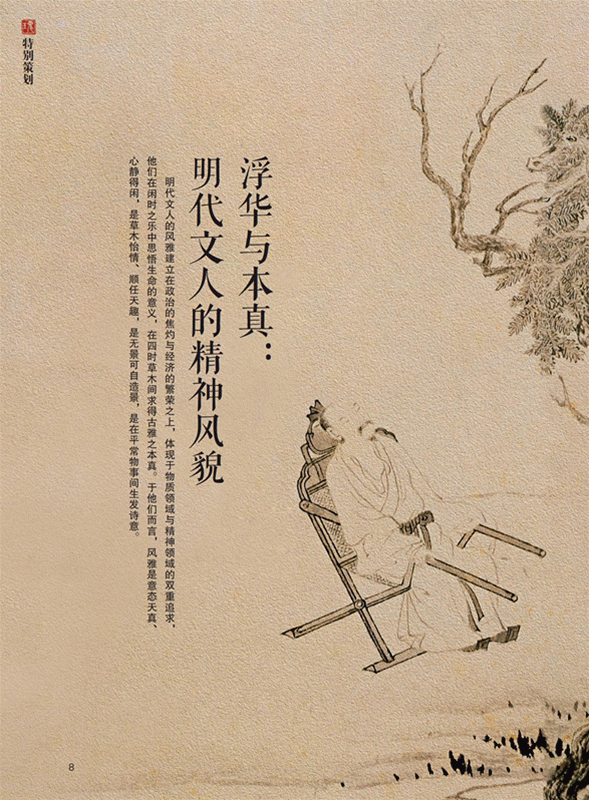 特别策划
浮华与本真：
明代文人的精神风貌
明代文人的风雅建立在政治的焦灼与经济的繁荣之上，体现于物质领域与精神领域的双重追求，
他们在闲时之乐中思悟生命的意义，在四时草木间求得古雅之本真。于他们而言，风雅是意态天真、
心静得闲，是草木怡情、顺任天趣，是无景可自造景，是在平常物事间生发诗意。
8